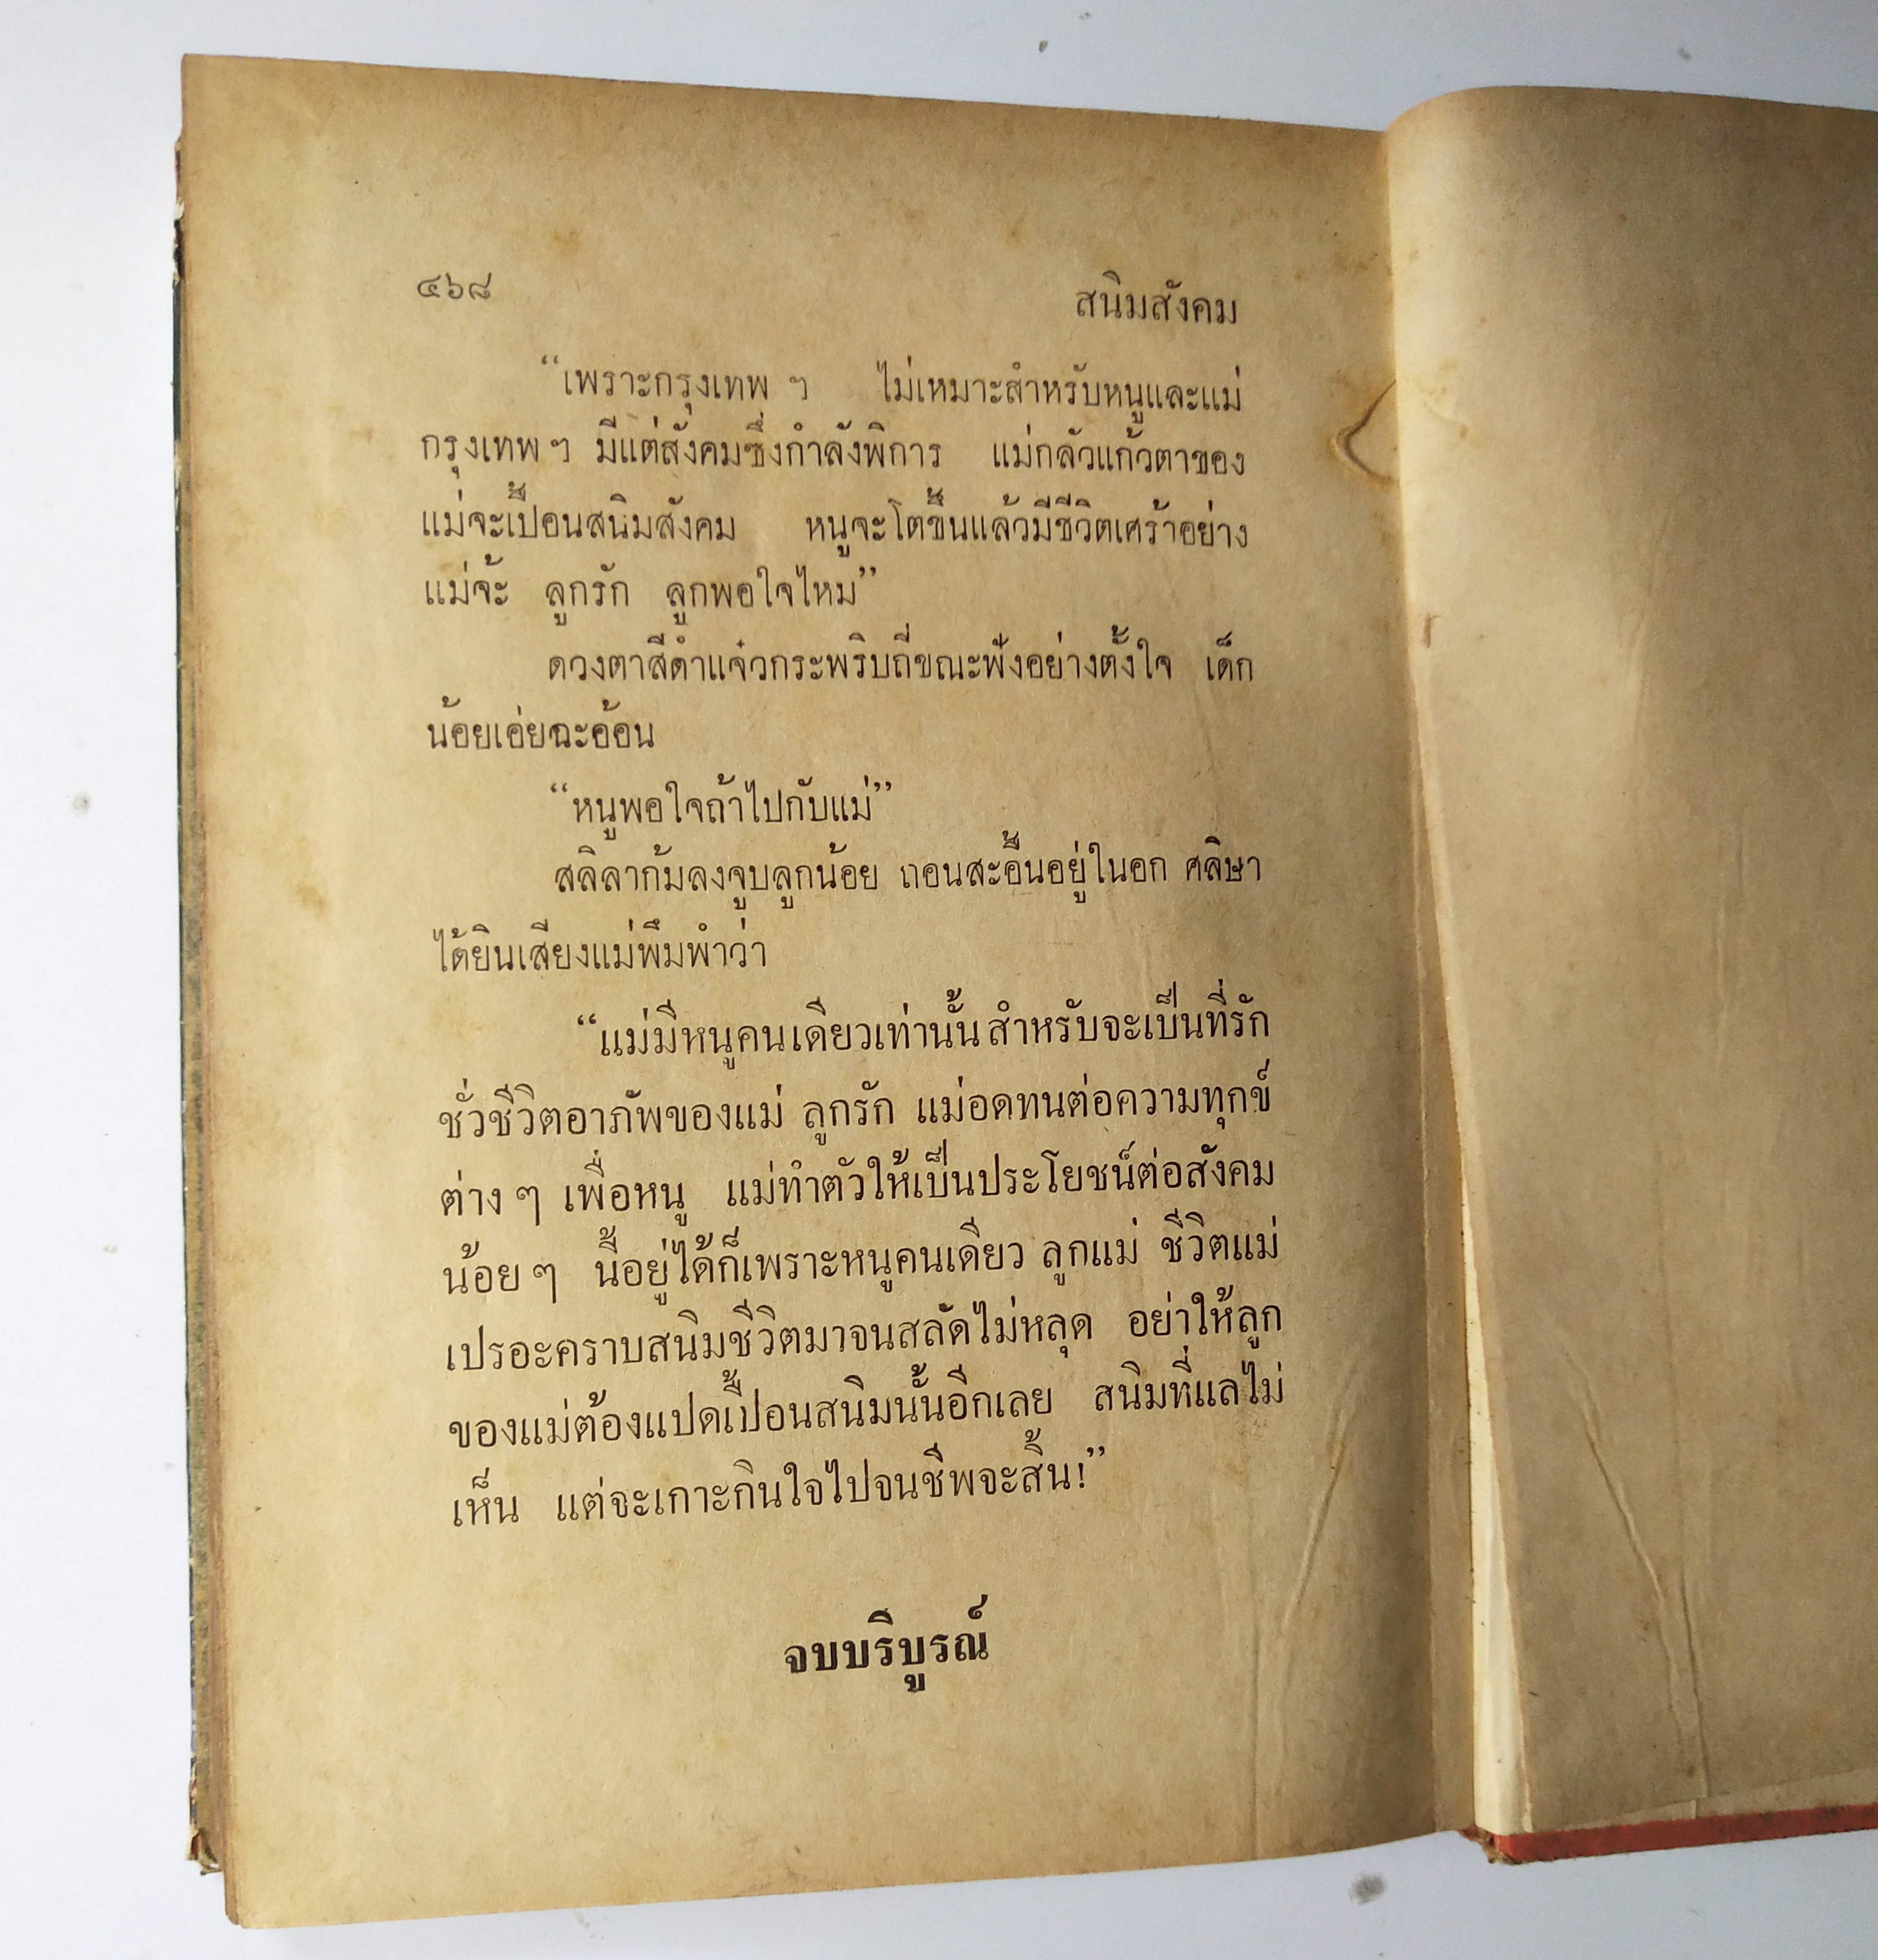 ๔๖๘ สนิมสังคม
“เพราะกรุงเทพ ฯ ไม่เหมาะสำหรับหนูและแม่
กรุงเทพ ฯ มีแต่สังคมซึ่งกำลังพิการ แม่กลัวแก้วตาของ
แม่จะเปื้อนสนิมสังคม หนูจะโตขึ้นแล้วมีชีวิตเศร้าอย่าง
แม่จ้ะ ลูกรัก ลูกพอใจไหม”
ดวงตาสีดำแจ๋วกระพริบถี่ขณะฟังอย่างตั้งใจ เด็ก
น้อยเอ่ยฉะอ้อน
“หนูพอใจถ้าไปกับแม่”
สลิลาก้มลงจูบลูกน้อย ถอนสะอื้นอยู่ในอก ศลิษา
ได้ยินเสียงแม่พึมพำว่า
“แม่มีหนูคนเดียวเท่านั้นสำหรับจะเป็นที่รัก
ชั่วชีวิตอาภัพของแม่ ลูกรัก แม่อดทนต่อความทุกข์
ต่าง ๆ เพื่อหนู แม่ทำตัวให้เป็นประโยชน์ต่อสังคม
น้อย ๆ นี้อยู่ได้ก็เพราะหนูคนเดียว ลูกแม่ ชีวิตแม่
เปรอะคราบสนิมชีวิตมาจนสลัดไม่หลุด อย่าให้ลูก
ของแม่ต้องแปดเปื้อนสนิมนั้นอีกเลย สนิมที่แลไม่
เห็น แต่จะเกาะกินใจไปจนชีพจะสิ้น!”
จบบริบูรณ์